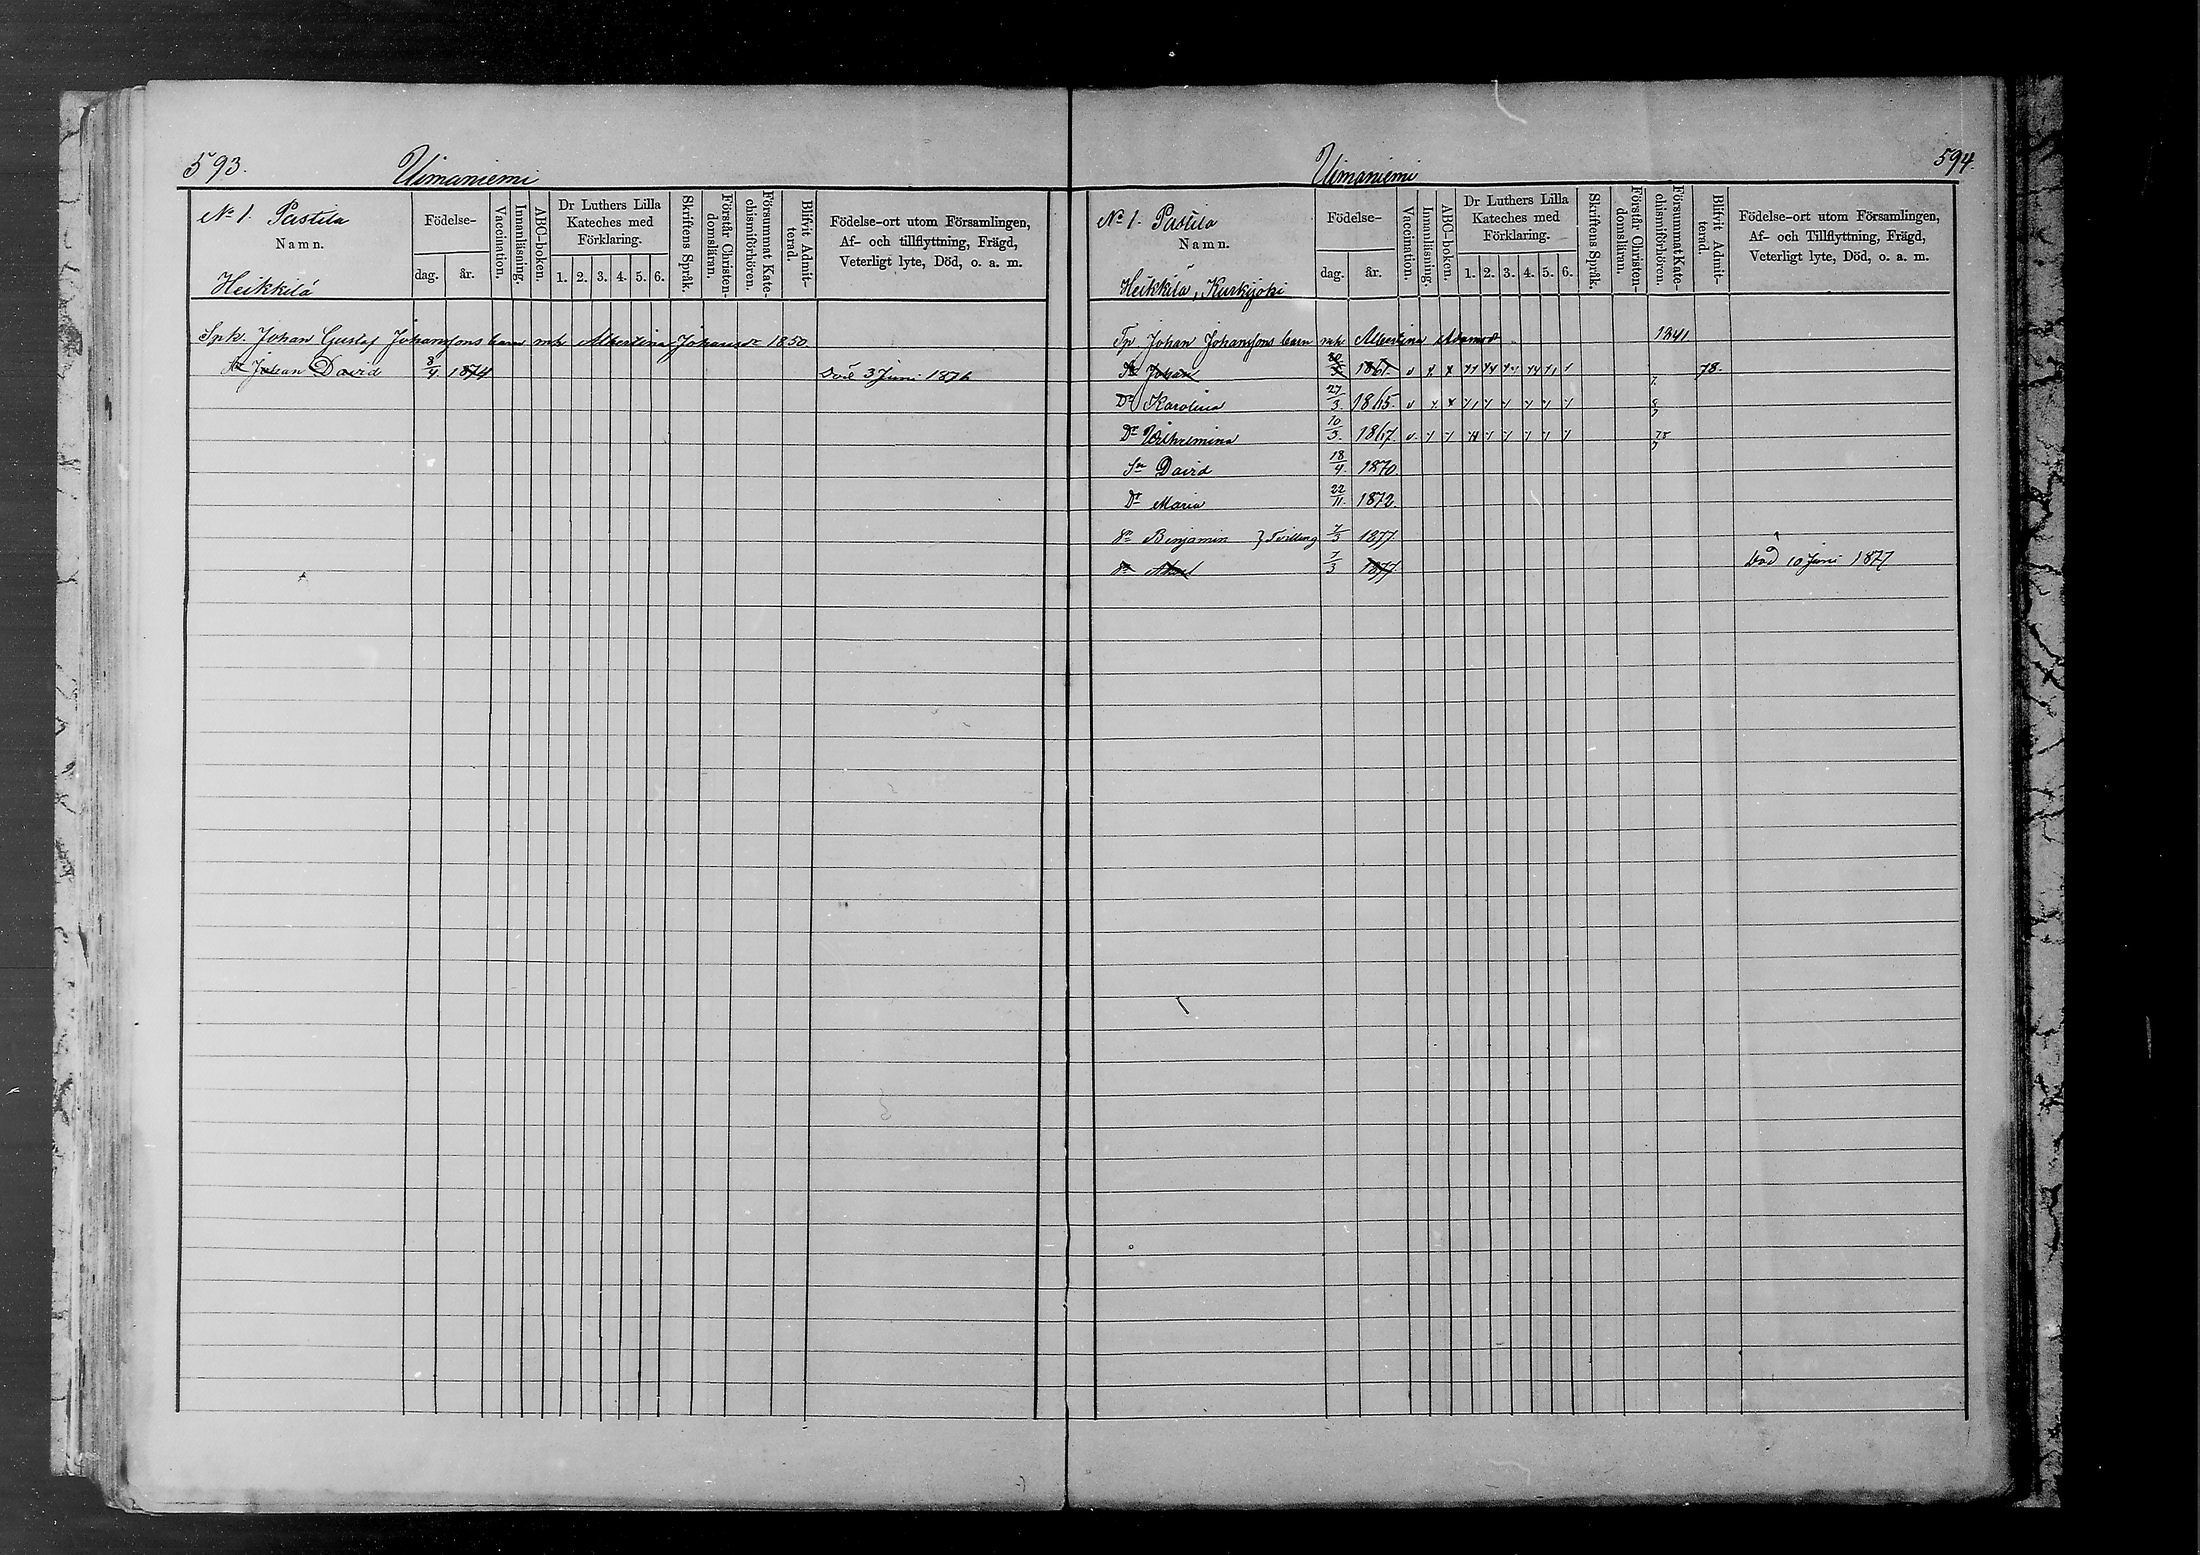 593.
Uimaniemi
No 1. Pastila
Namn.
Heikkilä
Födelse-
dag.
år.
Vaccination.
Innanläsning.
ABC-boken.
Dr Luthers Lilla
Kateches med
Förklaring.
1. 2. 3. 4. 5. 6.
Skriftens Språk.
Förstår Christen-
domsläran.
Försummat Kate-
chismiförhören.
Blifvit Admit-
terad.
Födelse-ort utom Församlingen,
Af- och tillflyttning, Frägd,
Veterligt lyte, Död, o. a. m.
Spk. Johan Gustaf Johanssons barn mh Albertina Johansdr 1850
Sn Johan David 8/4. 1874 Död 3 Juni 1876
594.
Uimaniemi
No 1. Pastila
Namn.
Heikkilä, Kurkijoki
Födelse-
dag.
år.
Vaccination.
Innanläsning.
ABC-boken.
Dr Luthers Lilla
Kateches med
Förklaring.
1. 2. 3. 4. 5. 6.
Skriftens Språk.
Förstår Christen-
domsläran.
Försummat Kate-
chismiförhören.
Blifvit Admit-
terad.
Födelse-ort utom Församlingen,
Af- och Tillflyttning, Frägd,
Veterligt lyte, Död, o. a. m.
Tp Johan Johanssons barn mh Albertina Adamsdr 1841
Sn Johan 1861. 78.
Dr Karolina 27/3. 1865.
Dr Wilhelmina 10/3. 1867.
Sn David 18/4. 1870.
Dr Maria 22/11. 1872.
Sn Benjamin } Tvilling 7/3 1877
Sn 7/3 1877 Död 10 Juni 1877